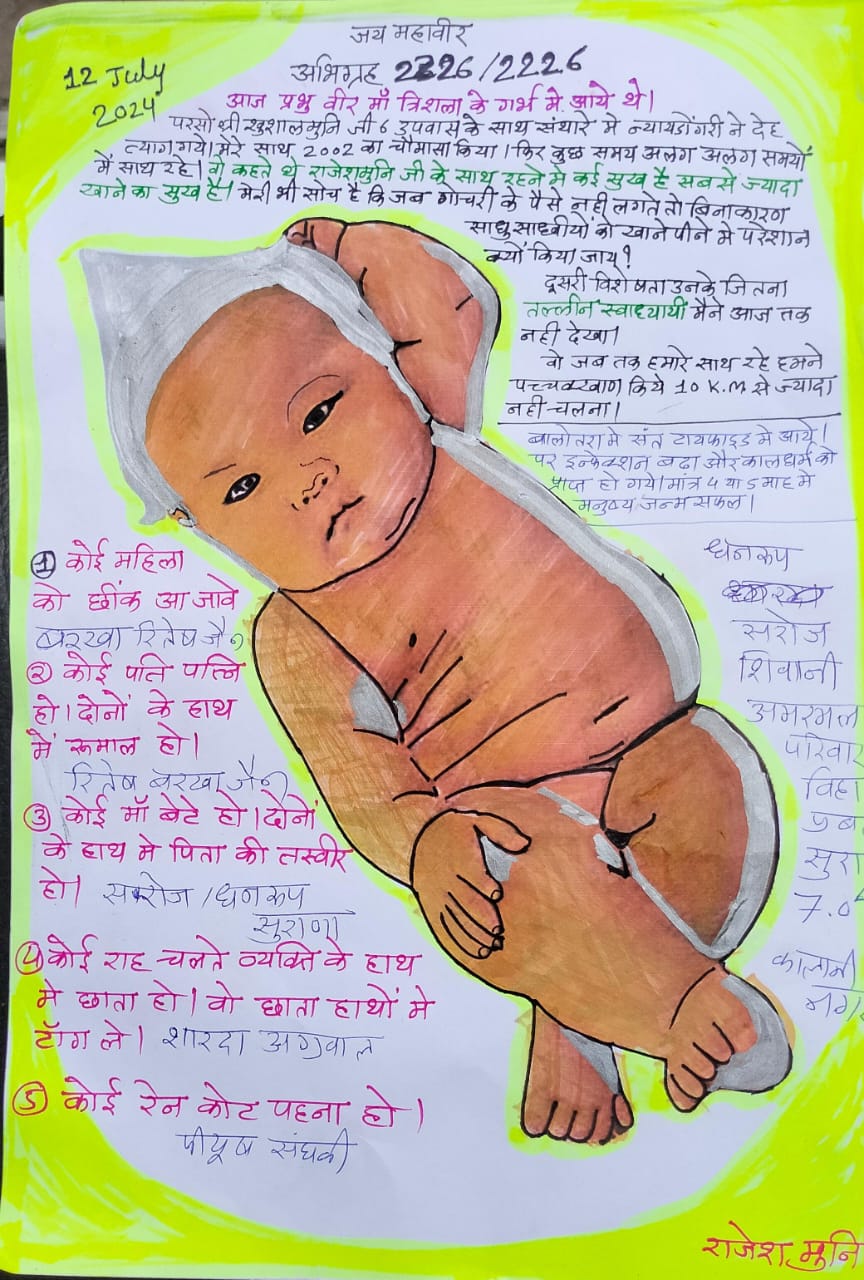 जय महावीर
12 July
2024
अभिग्रह 2226/2226
आज प्रभु वीर माँ त्रिशला के गर्भ मे आये थे।
परसो श्री खुशालमुनि जी 6 उपवास के साथ संथारे मे न्यायडोंगरी ने देह
त्याग गये। मेरे साथ 2002 का चौमासा किया। फिर कुछ समय अलग अलग समयों
में साथ रहे। वो कहते थे राजेशमुनि जी के साथ रहने मे कई सुख है सब से ज्यादा
खाने का सुख है। मेरी भी सोच है कि जब गोचरी के पैसे नही लगते तो बिनाकारण
साधु साध्वीयों को खाने पीने मे परेशान
क्यों किया जाय?
दूसरी विशेषता उनके जितना
तल्लीन स्वाध्यायी मैने आज तक
नही देखा।
वो जब तक हमारे साथ रहे हमने
पच्चक्खाण किये 10 K.M से ज्यादा
नही चलना।
बालोतरा मे संत टायफाइड मे आये।
पर इन्फेक्शन बढा और कालधर्म को
प्राप्त हो गये। मात्र 4 या 5 माह मे
मनुष्य जन्म सफल।
① कोई महिला
को छींक आ जावे
बरखा रितेष जैन
② कोई पति पत्नि
हो। दोनों के हाथ
में रूमाल हो।
रितेष बरखा जैन
③ कोई माँ बेटे हो। दोनों
के हाथ मे पिता की तस्वीर
हो। सरोज / धनरूप
सुराणा
④ कोई राह चलते व्यक्ति के हाथ
मे छाता हो। वो छाता हाथों मे
टाँग ले। शारदा अग्रवाल
⑤ कोई रेन कोट पहना हो।
पीयूष संघवी
धनरूप
सरोज
शिवानी
अमरमल
परिवार
विहा
सुरा
7.0
कालानी
नग
राजेश मुनि